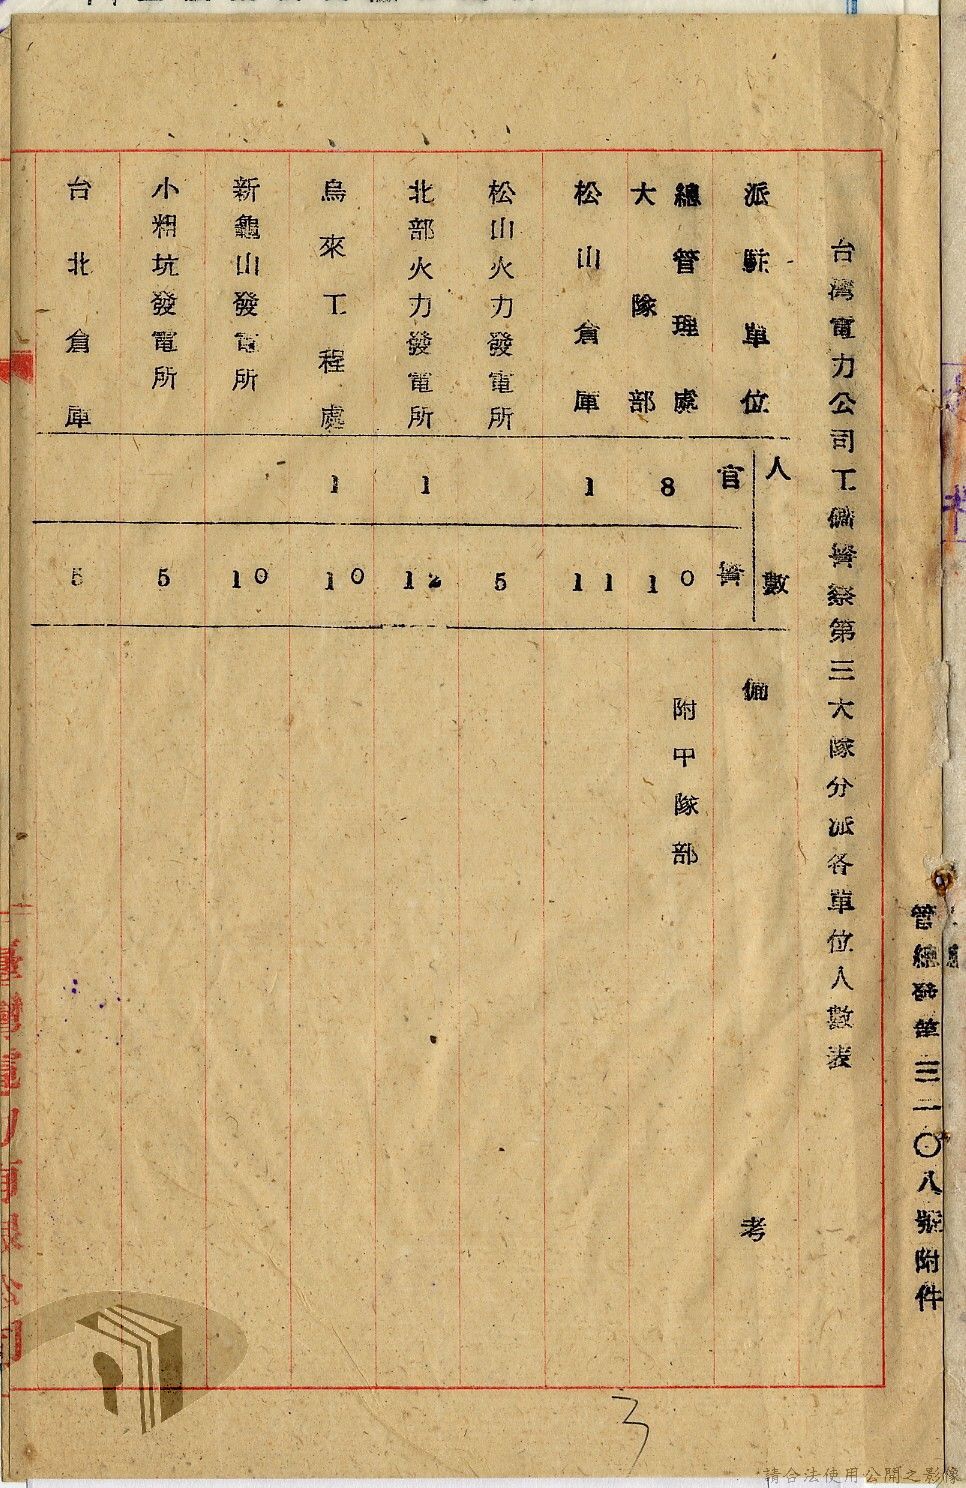 管總發第三二〇八號附件
台灣電力公司工礦警察第三大隊分派各單位人數表
派駐單位 人數 官 警 備考
總管理處
大隊部 8 10 附甲隊部
松山倉庫 1 11
松山火力發電所 5
北部火力發電所 1 12
烏來工程處 1 10
新龜山發電所 10
小粗坑發電所 5
台北倉庫 5
臺灣電力有限公司
3
請合法使用公開之影像